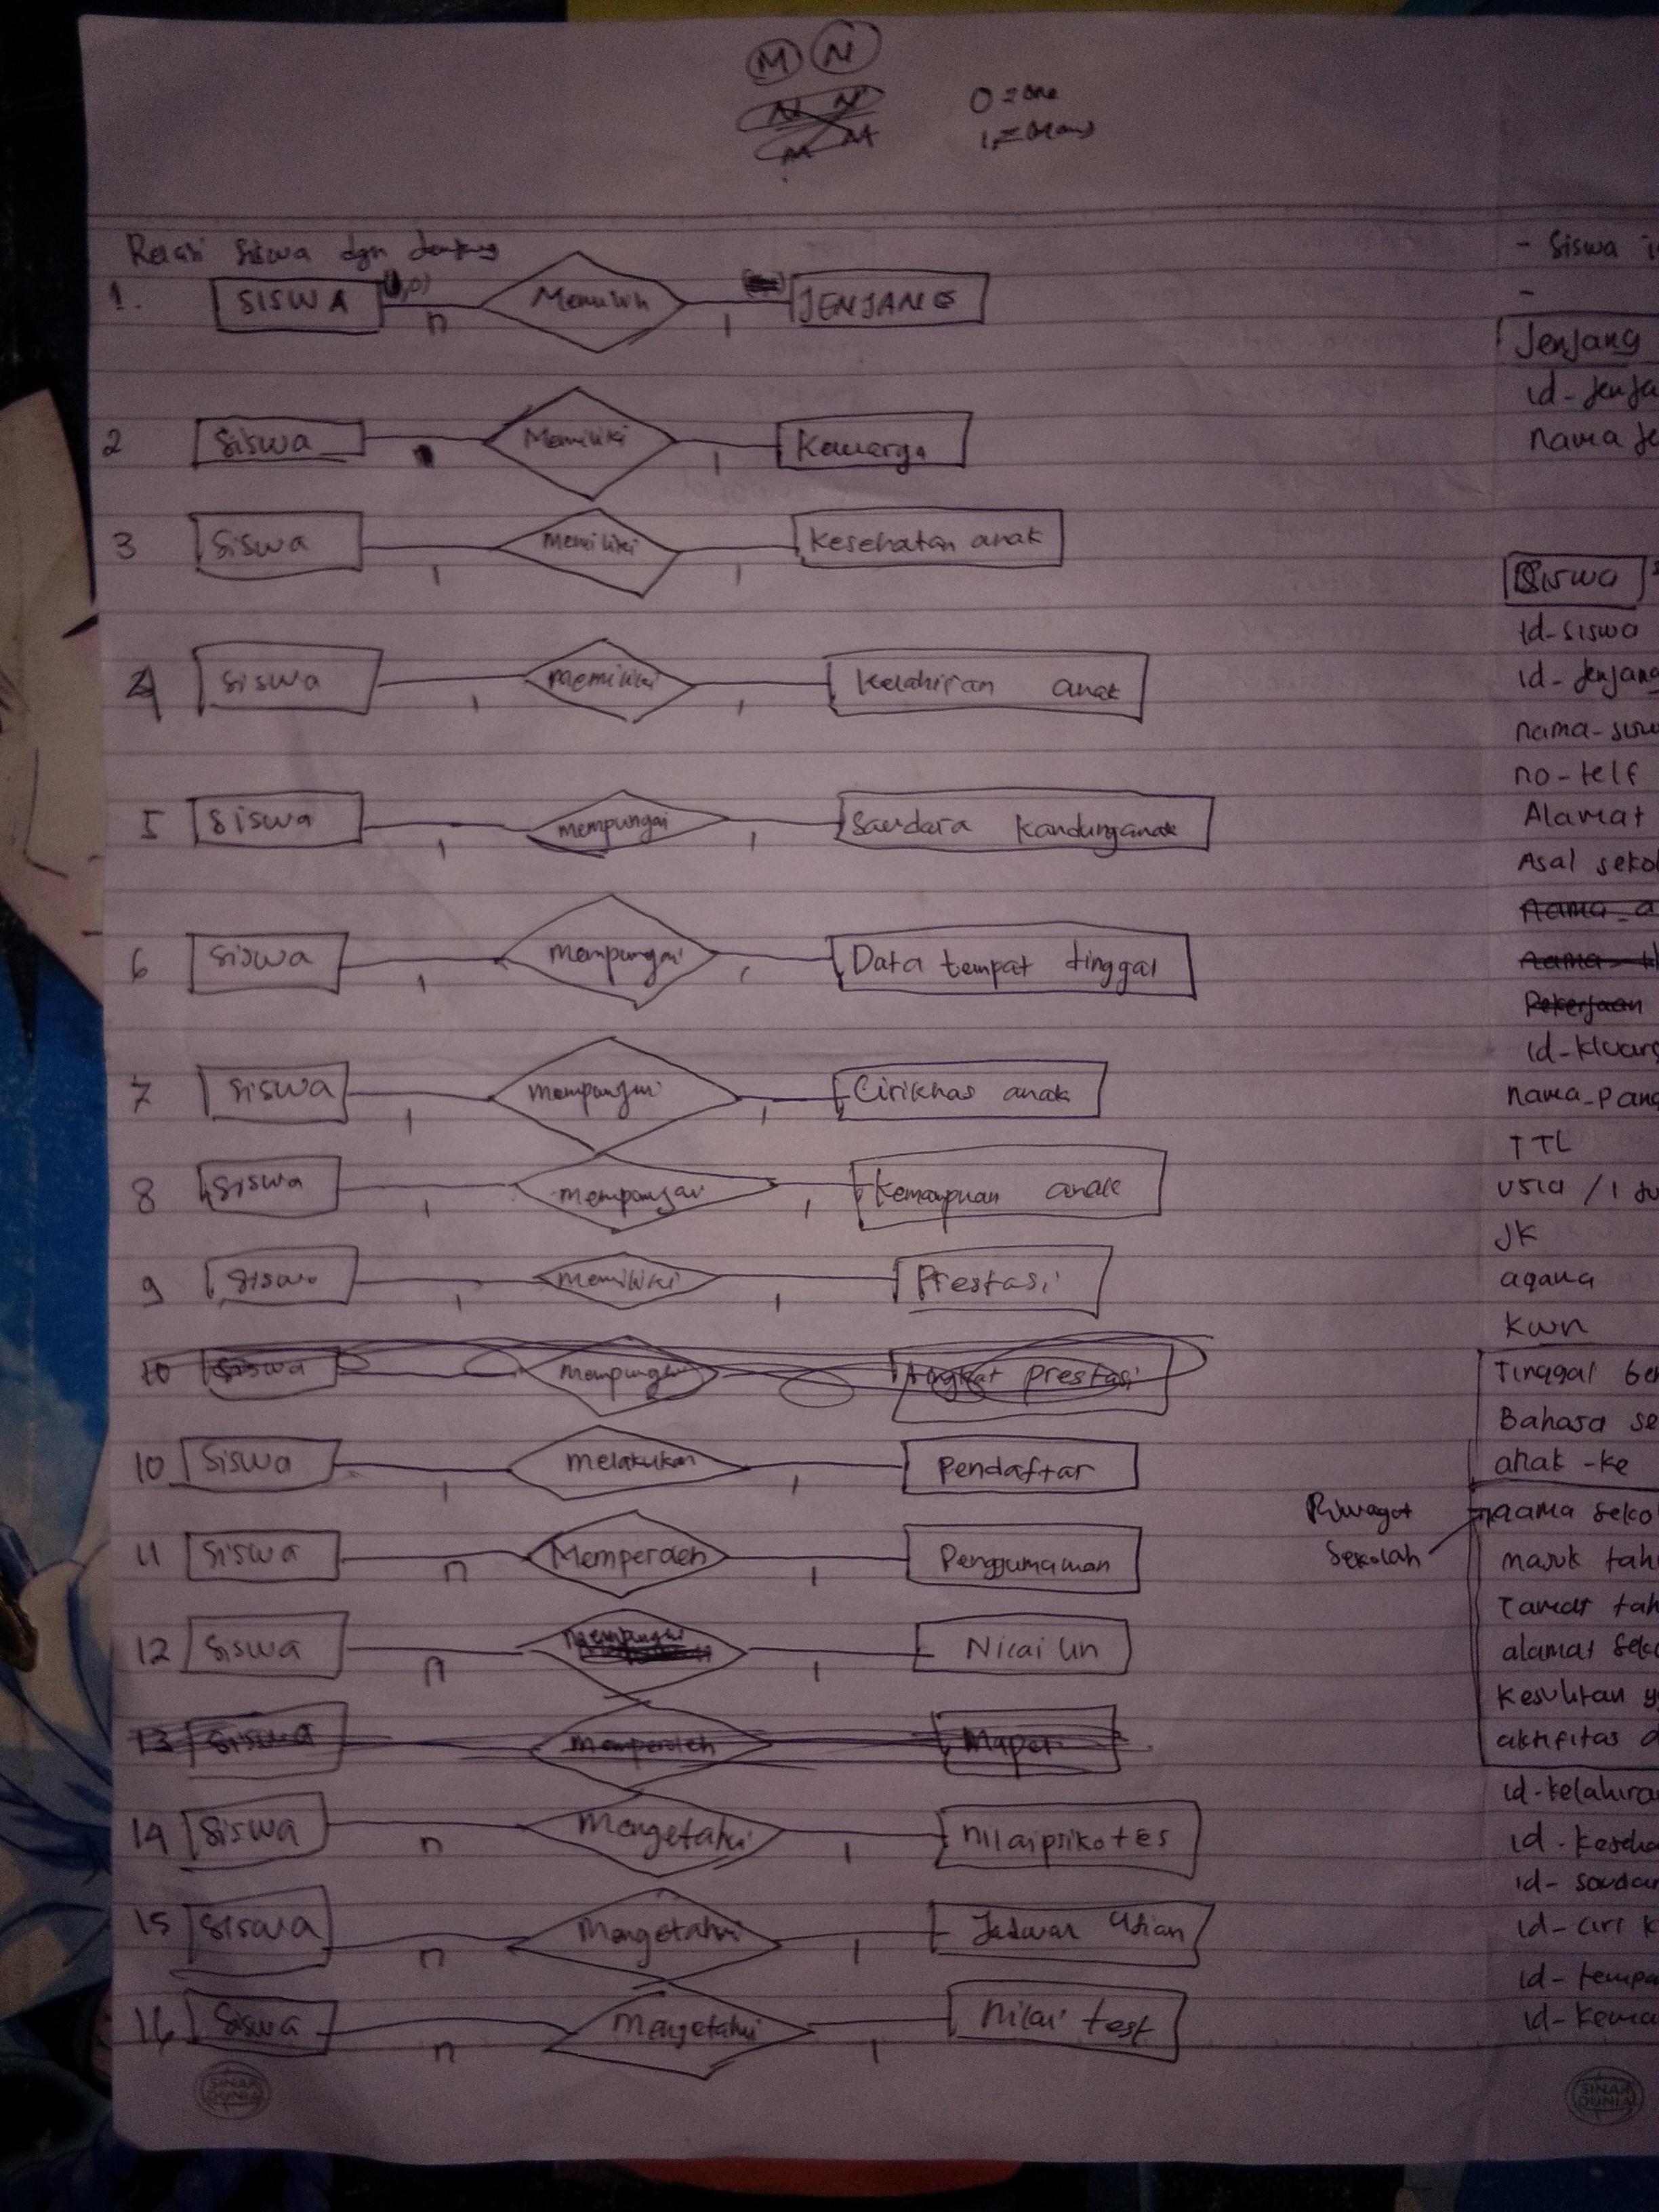 M N
N N
M M
0 = one
Relasi Siswa dgn Jenjang
1. SISWA n Memilih 1 JENJANG
2 Siswa Memiliki 1 Keluarga
3 Siswa 1 memiliki 1 Kesehatan anak
4 Siswa 1 memiliki 1 Kelahiran anak
5 Siswa 1 mempunyai 1 Saudara kandung anak
6 Siswa 1 mempunyai 1 Data tempat tinggal
7 Siswa 1 mempunyai 1 Cirikhas anak
8 Siswa 1 mempunyai 1 Kemampuan anak
9 Siswa 1 Memiliki 1 Prestasi
10 Siswa Mempunyai Tingkat prestasi
10 Siswa 1 melakukan 1 Pendaftar
11 Siswa n Memperoleh 1 Penggumuman
12 Siswa n mempunyai 1 Nilai Un
13 Siswa memperoleh Maper
14 Siswa n Mengetahui 1 nilai psikotes
15 Siswa n Mengetahui 1 Jadwal Ujian
16 Siswa n Mengetahui 1 Nilai test
SINAR DUNIA
- Siswa
-
Jenjang
id-jenja
nama je
Siswa
id-siswa
id-jenjang
nama-sisw
no-telf
Alamat
Asal sekol
nama_a
nama
Pekerjaan
id-kluarg
nama_pang
TTL
usia / 1 ju
JK
agama
kwn
Tinggal ber
Bahasa se
anak-ke
Riwayat Sekolah
nama seko
masuk tahu
Tamat tah
alamat seko
kesulitan y
aktifitas d
id-kelahira
id-keseha
id-saudar
id-ciri k
id-tempa
id-kema
SINAR DUNIA